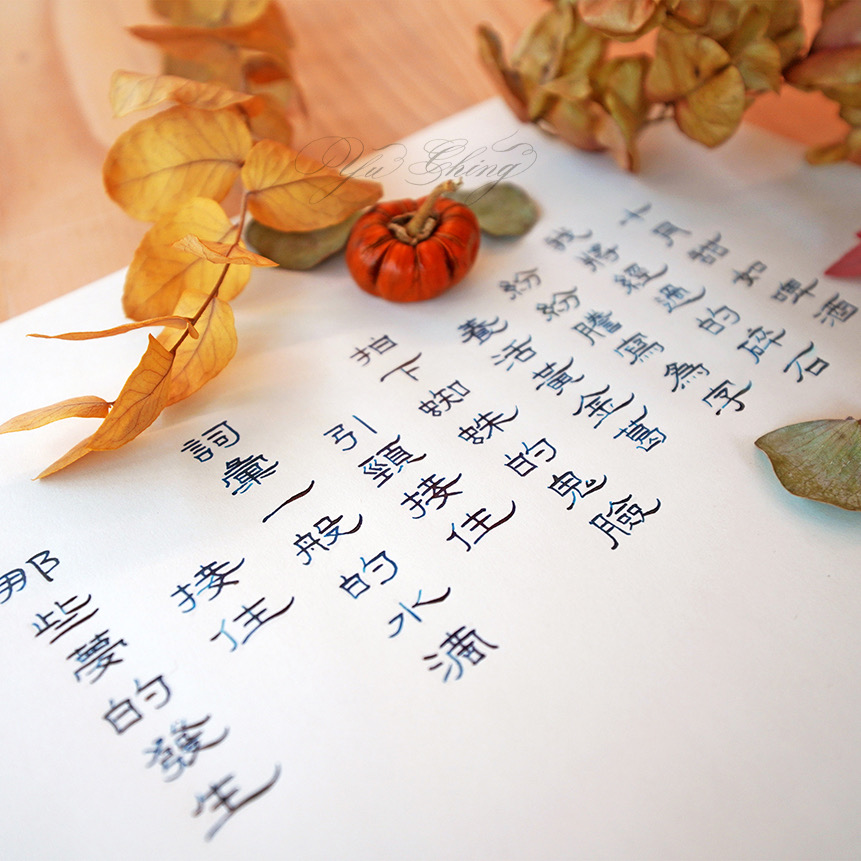 Yu Ching
十月甜如啤酒
我將經過的碎石
紛紛謄寫為字
養活黃金葛
拍下蜘蛛的鬼臉
引頸接住
詞彙一般的水滴
接住
那些夢的發生